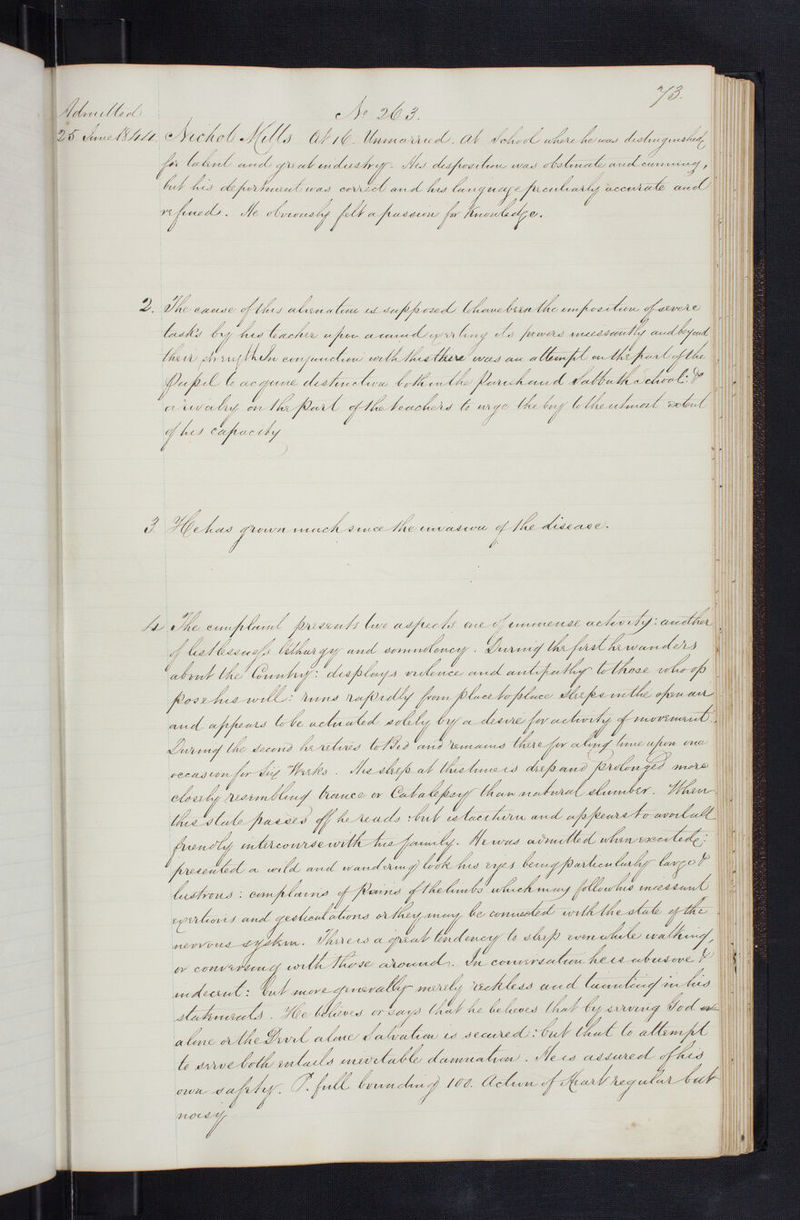 73.
Admitted
No 263.
25 June 1844. Nichol Mills At 16. Unmarried. At School where he was distinguished
for talent and great industry. His disposition was obstinate and cunning,
but his deportment was correct and his language peculiarly accurate and
refined. He obviously felt a passion for knowledge.
2. The cause of this alienation is supposed to have been the imposition of severe
tasks by his teacher upon a mind exerting its powers incessantly and beyond
their strength In conjunction with this there was an attempt on the part of the
Pupil to acquire distinction both in the Parish and Sabbath School: &
a rivalry on the part of the teachers to urge the boy to the utmost extent
of his capacity
3. He has grown much since the invasion of the disease.
4 The complaint presents two aspects one of immense activity: another
of listlessness lethargy and somnolency. During the first he wanders
about the Country: displays violence and antipathy to those who op
pose his will: runs rapidly from place to place sleeps in the open air
and appears to be actuated solely by a desire for activity of movement.
During the second he retires to Bed and remains there for a long time upon one
occasion for Six Weeks. His sleep at this time is deep and prolonged more
closely resembling trance or Catalepsy than natural slumber. When
this state passes off he reads but is taciturn and appears to avoid all
friendly intercourse with his family. He was admitted when excited;
presented a wild and wandering look his eyes being particularly large &
lustrous: complains of pains of the limbs which may follow his incessant
exertions and gesticulations or they may be connected with the state of the
nervous system. There is a great tendency to sleep even while walking,
or conversing with those around. In conversation he is abusive &
indecent: but more generally merely reckless and taunting in his
statements. He believes or says that he believes that by serving God
alone or the Devil alone Salvation is secured: but that to attempt
to serve both entails inevitable damnation. He is assured of his
own safety. P. full bounding 100. Action of Heart regular but
noisy